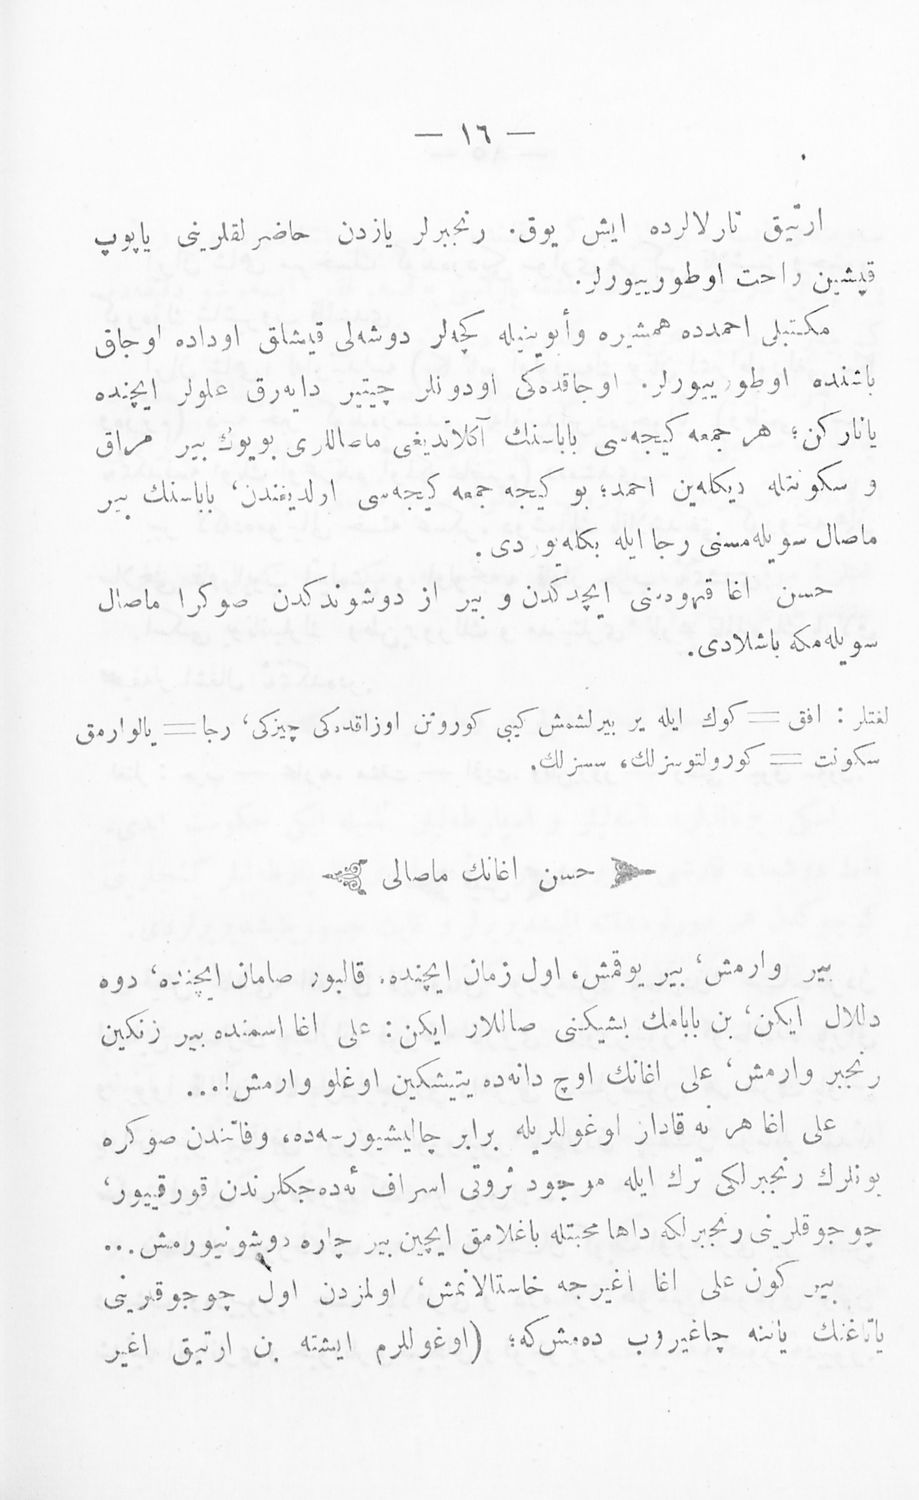 — ١٦ —
ارتیق تارلالرده ایش یوق. رنجبرلر یازدن حاضرلقلرینی یاپوپ
قیشین راحت اوطورییورلر.
مکتبلی احمدده همشیره وأبوینیله کچه‌لر دوشه‌لی قیشلق اوداده اوجاق
باشنده اوطورییورلر. اوجاقده‌کی اودونلر چیتیر دایه‌رق علولر ایچنده
یانارکن؛ هر جمعه کیجه‌سی باباسنك آکلاتدیغی ماصاللری بویوك بیر مراق
و سکونتله دیکله‌ین احمد؛ بو کیجه جمعه کیجه‌سی اولدیغندن، باباسنك بیر
ماصال سویله‌مسنی رجا ایله بکله‌یوردی.
حسن اغا قهوه‌سنی ایچدکدن و بیر از دوشوندکدن صوکرا ماصال
سویله‌مکه باشلادی.
لغتلر : افق = کوك ایله یر بیرلشمش کیبی کورونن اوزاقده‌کی چیزکی، رجا = یالوارمق
سکونت = کورولتوسزلك، سسزلك.
حسن اغانك ماصالی
بیر وارمش، بیر یوقمش، اول زمان ایچنده. قالبور صامان ایچنده، دوه
دللال ایکن، بن بابامك بشیکنی صاللار ایکن : علی اغا اسمنده بیر زنکین
رنجبر وارمش، علی اغانك اوچ دانه‌ده یتیشکین اوغلو وارمش!...
علی اغا هر نه قادار اوغوللریله برابر چالیشیورسه‌ده، وفاتندن صوکره
بونلرك رنجبرلکی ترك ایله موجود ثروتی اسراف ئه‌ده‌جکلرندن قورقییور،
چوجوقلرینی رنجبرلکه داها محبتله باغلامق ایچین بیر چاره دوشونیورمش...
بیر کون علی اغا اغیرجه خاستالانمش، اولمزدن اول چوجوقرینی
یاتاغنك یاننه چاغیروب ده‌مش‌که؛ (اوغوللرم ایشته بن ارتیق اغیر